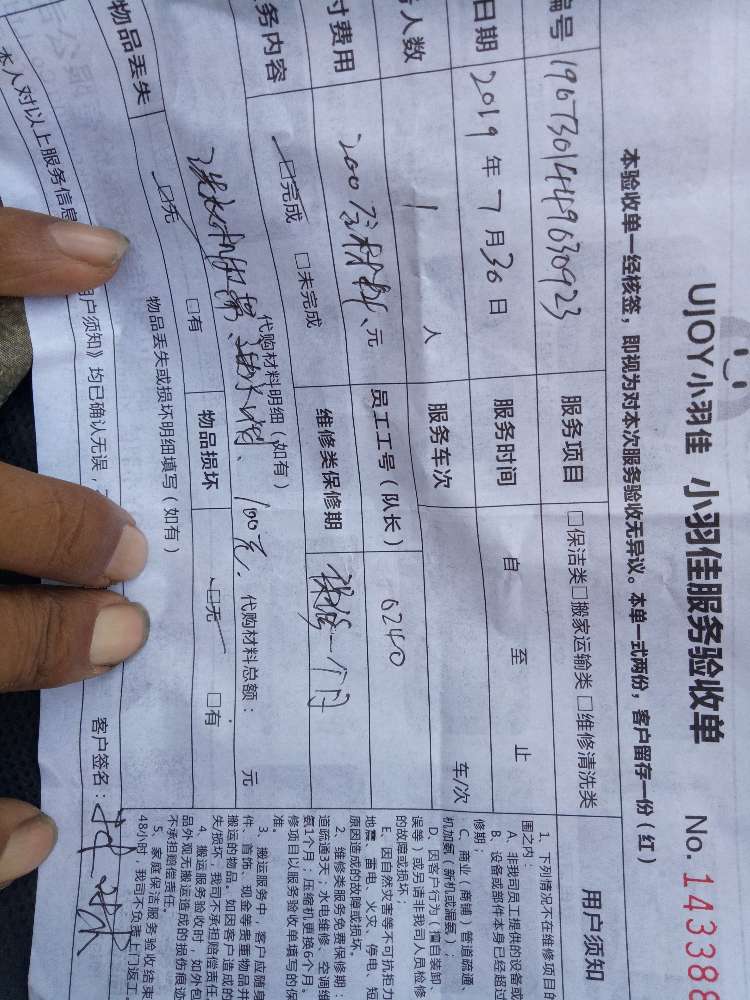 UJOY小羽佳 小羽佳服务验收单 No. 143388
本验收单一经核签，即视为对本次服务验收无异议。本单一式两份，客户留存一份（红）
编号 1907301449630923 服务项目 □保洁类□搬家运输类 □维修清洗类
日期 2019 年 7 月 30 日 服务时间 自 至 止
人数 1 人 服务车次 车/次
付费用 200 元 员工工号（队长） 6240
务内容 □完成 □未完成 维修类保修期 保修一个月
代购材料明细（如有）
100元. 代购材料总额： 元
物品丢失 □无 □有 物品损坏 □无 □有
物品丢失或损坏明细填写（如有）
本人对以上服务信息
用户须知》均已确认无误，
客户签名：
用户须知
1、下列情况不在维修项目的
围之内：
A、非我司员工提供的设备或
B、设备或部件本身已经超过
修期；
C、商业（商铺）管道疏通、
机加氨（新机或漏氨）；
D、因客户行为（擅自装卸
误等）或另请非我司人员检修
的故障或损坏；
E、因自然灾害等不可抗拒力
地震、雷电、火灾、停电、短
原因造成的故障或损坏。
2、维修类服务免费保修期：
道疏通3天；水电维修、空调维
氨1个月；压缩机更换6个月。
修项目以服务验收单填写的保
准。
3、搬运服务中，客户应随身
件、首饰、现金等贵重物品并
搬运的物品。如因客户造成的
失/损坏，我司不承担赔偿责任
4、搬运服务验收时，如外包
品外观无搬运造成的损伤痕迹
不承担赔偿责任。
5、家庭保洁服务验收结束
48小时，我司不负责上门返工